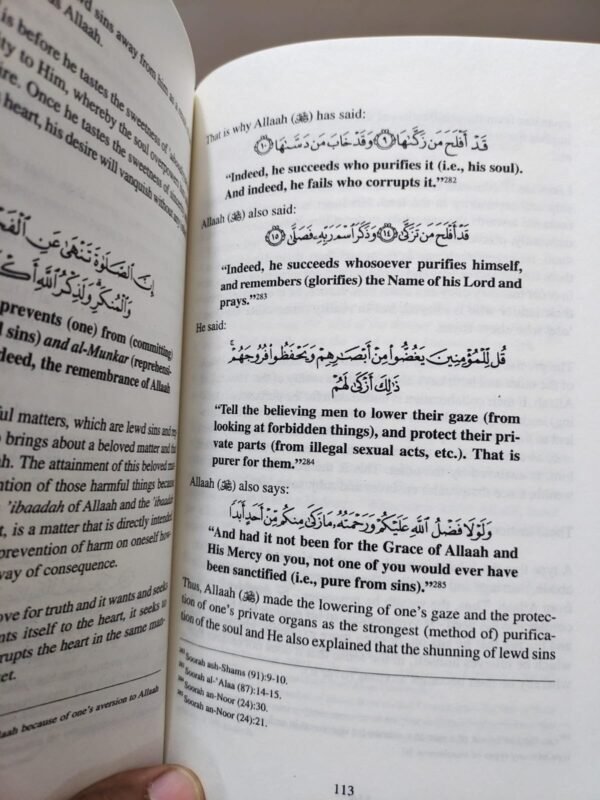 ewd sins away from him as a
us Allaah.
is before he tastes the sweetness of
ity to Him, whereby the soul overpowers
ire. Once he tastes the sweetness of
heart, his desire will vanquish without any
إِنَّ ٱلصَّلَوٰةَ تَنْهَىٰ عَنِ ٱلْفَحْ
وَٱلْمُنكَرِ وَلَذِكْرُ ٱللَّهِ أَكْ
prevents (one) from (committing)
d sins) and al-Munkar (reprehensi-
deed, the remembrance of Allaah
ful matters, which are lewd sins and
o brings about a beloved matter and
ah. The attainment of this beloved
ention of those harmful things because
e 'ibaadah of Allaah and the 'ibaadah
t, is a matter that is directly intended
prevention of harm on oneself
way of consequence.
ove for truth and it wants and seeks
nts itself to the heart, it seeks to
rupts the heart in the same man-
et.
aah because of one's aversion to Allaah
That is why Allaah (ﷻ) has said:
قَدْ أَفْلَحَ مَن زَكَّىٰهَا ٩ وَقَدْ خَابَ مَن دَسَّىٰهَا ١٠
“Indeed, he succeeds who purifies it (i.e., his soul).
And indeed, he fails who corrupts it.”282
Allaah (ﷻ) also said:
قَدْ أَفْلَحَ مَن تَزَكَّىٰ ١٤ وَذَكَرَ ٱسْمَ رَبِّهِۦ فَصَلَّىٰ ١٥
“Indeed, he succeeds whosoever purifies himself,
and remembers (glorifies) the Name of his Lord and
prays.”283
He said:
قُل لِّلْمُؤْمِنِينَ يَغُضُّوا۟ مِنْ أَبْصَٰرِهِمْ وَيَحْفَظُوا۟ فُرُوجَهُمْ ۚ
ذَٰلِكَ أَزْكَىٰ لَهُمْ
“Tell the believing men to lower their gaze (from
looking at forbidden things), and protect their pri-
vate parts (from illegal sexual acts, etc.). That is
purer for them.”284
Allaah (ﷻ) also says:
وَلَوْلَا فَضْلُ ٱللَّهِ عَلَيْكُمْ وَرَحْمَتُهُۥ مَا زَكَىٰ مِنكُم مِّنْ أَحَدٍ أَبَدًا
“And had it not been for the Grace of Allaah and
His Mercy on you, not one of you would ever have
been sanctified (i.e., pure from sins).”285
Thus, Allaah (ﷻ) made the lowering of one’s gaze and the protec-
tion of one’s private organs as the strongest (method of) purifica-
tion of the soul and He also explained that the shunning of lewd sins
282 Soorah ash-Shams (91):9-10.
283 Soorah al-'Alaa (87):14-15.
284 Soorah an-Noor (24):30.
285 Soorah an-Noor (24):21.
113